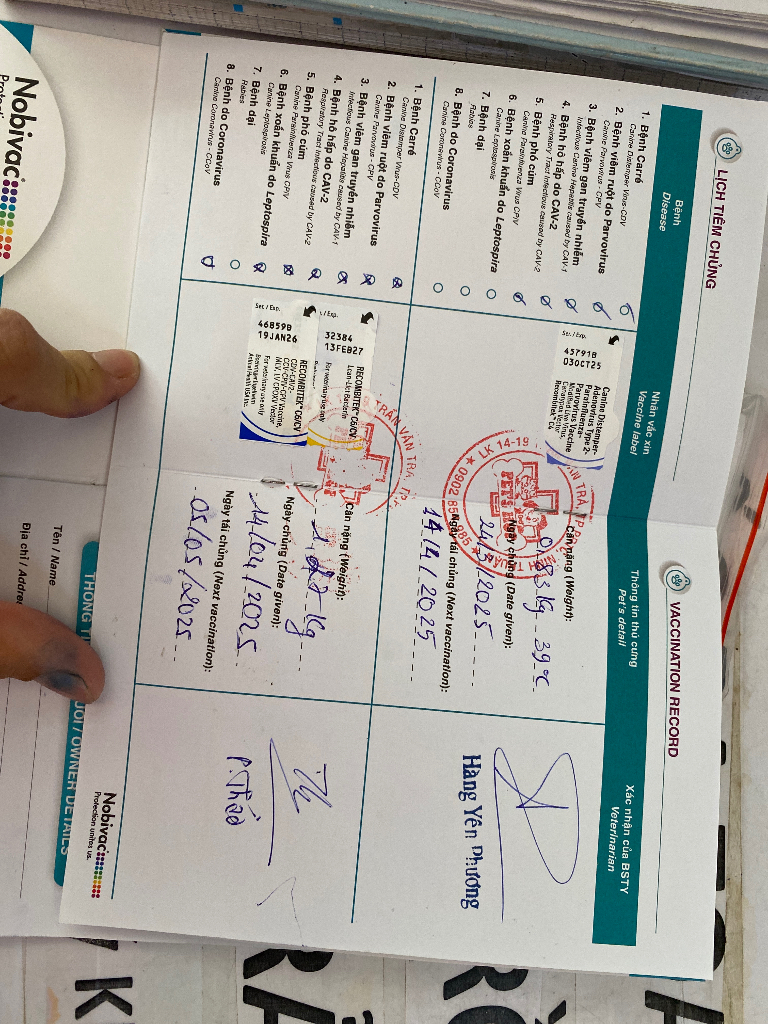 LỊCH TIÊM CHỦNG
VACCINATION RECORD
Bệnh
Disease
Nhãn vắc xin
Vaccine label
Thông tin thú cưng
Pet's detail
Xác nhận của BSTY
Veterinarian
1. Bệnh Carré
Canine Distemper Virus-CDV
2. Bệnh viêm ruột do Parvovirus
Canine Parvovirus - CPV
3. Bệnh viêm gan truyền nhiễm
Infectious Canine Hepatitis caused by CAV-1
4. Bệnh hô hấp do CAV-2
Respiratory Tract Infectious caused by CAV-2
5. Bệnh phó cúm
Canine Parainfluenza Virus CPiV
6. Bệnh xoắn khuẩn do Leptospira
Canine Leptospirosis
7. Bệnh dại
Rabies
8. Bệnh do Coronavirus
Canine Coronavirus - CCoV
Ser. / Exp.
45791B
03OCT25
Canine Distemper-
Adenovirus Type 2-
Parainfluenza-
Parvovirus Vaccine
Modified Live Virus,
Canarypox Vector
Recombitek C4
LK 14-19
PET
Cân nặng (Weight):
0,83 Kg 39°C
Ngày chủng (Date given):
24/3/2025
Ngày tái chủng (Next vaccination):
14/4/2025
Hàng Yên Phương
1. Bệnh Carré
Canine Distemper Virus-CDV
2. Bệnh viêm ruột do Parvovirus
Canine Parvovirus - CPV
3. Bệnh viêm gan truyền nhiễm
Infectious Canine Hepatitis caused by CAV-1
4. Bệnh hô hấp do CAV-2
Respiratory Tract Infectious caused by CAV-2
5. Bệnh phó cúm
Canine Parainfluenza Virus CPiV
6. Bệnh xoắn khuẩn do Leptospira
Canine Leptospirosis
7. Bệnh dại
Rabies
8. Bệnh do Coronavirus
Canine Coronavirus - CCoV
/ Exp.
32384
13FEB27
RECOMBITEK® C6/CV
For veterinary use only
Ser. / Exp.
46859B
19JAN26
RECOMBITEK® C6/CV
CDV-CAV2-
CCV-CPiV-CPV Vaccine,
MLV, LV CPOXV Vector
For veterinary use only
Boehringer Ingelheim
Animal Health USA Inc.
TRẦN VĂN TRÀ
Cân nặng (Weight):
Kg
Ngày chủng (Date given):
14/04/2025
Ngày tái chủng (Next vaccination):
05/05/2025
P.Thảo
Nobivac
Protection unites us.
Nobivac
THÔNG TI
UÔI / OWNER DETAILS
Tên / Name
Địa chỉ / Addre